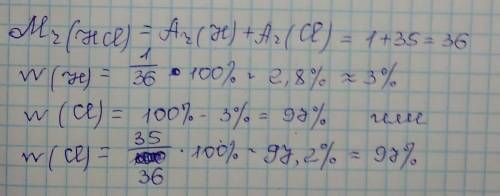 Mr(HCl) = Ar(H) + Ar(Cl) = 1+35 = 36
w(H) = 1/36 • 100% = 2,8% ≈ 3%
w(Cl) = 100% - 3% = 97% или
w(Cl) = 35/36 · 100% = 97,2% = 97%